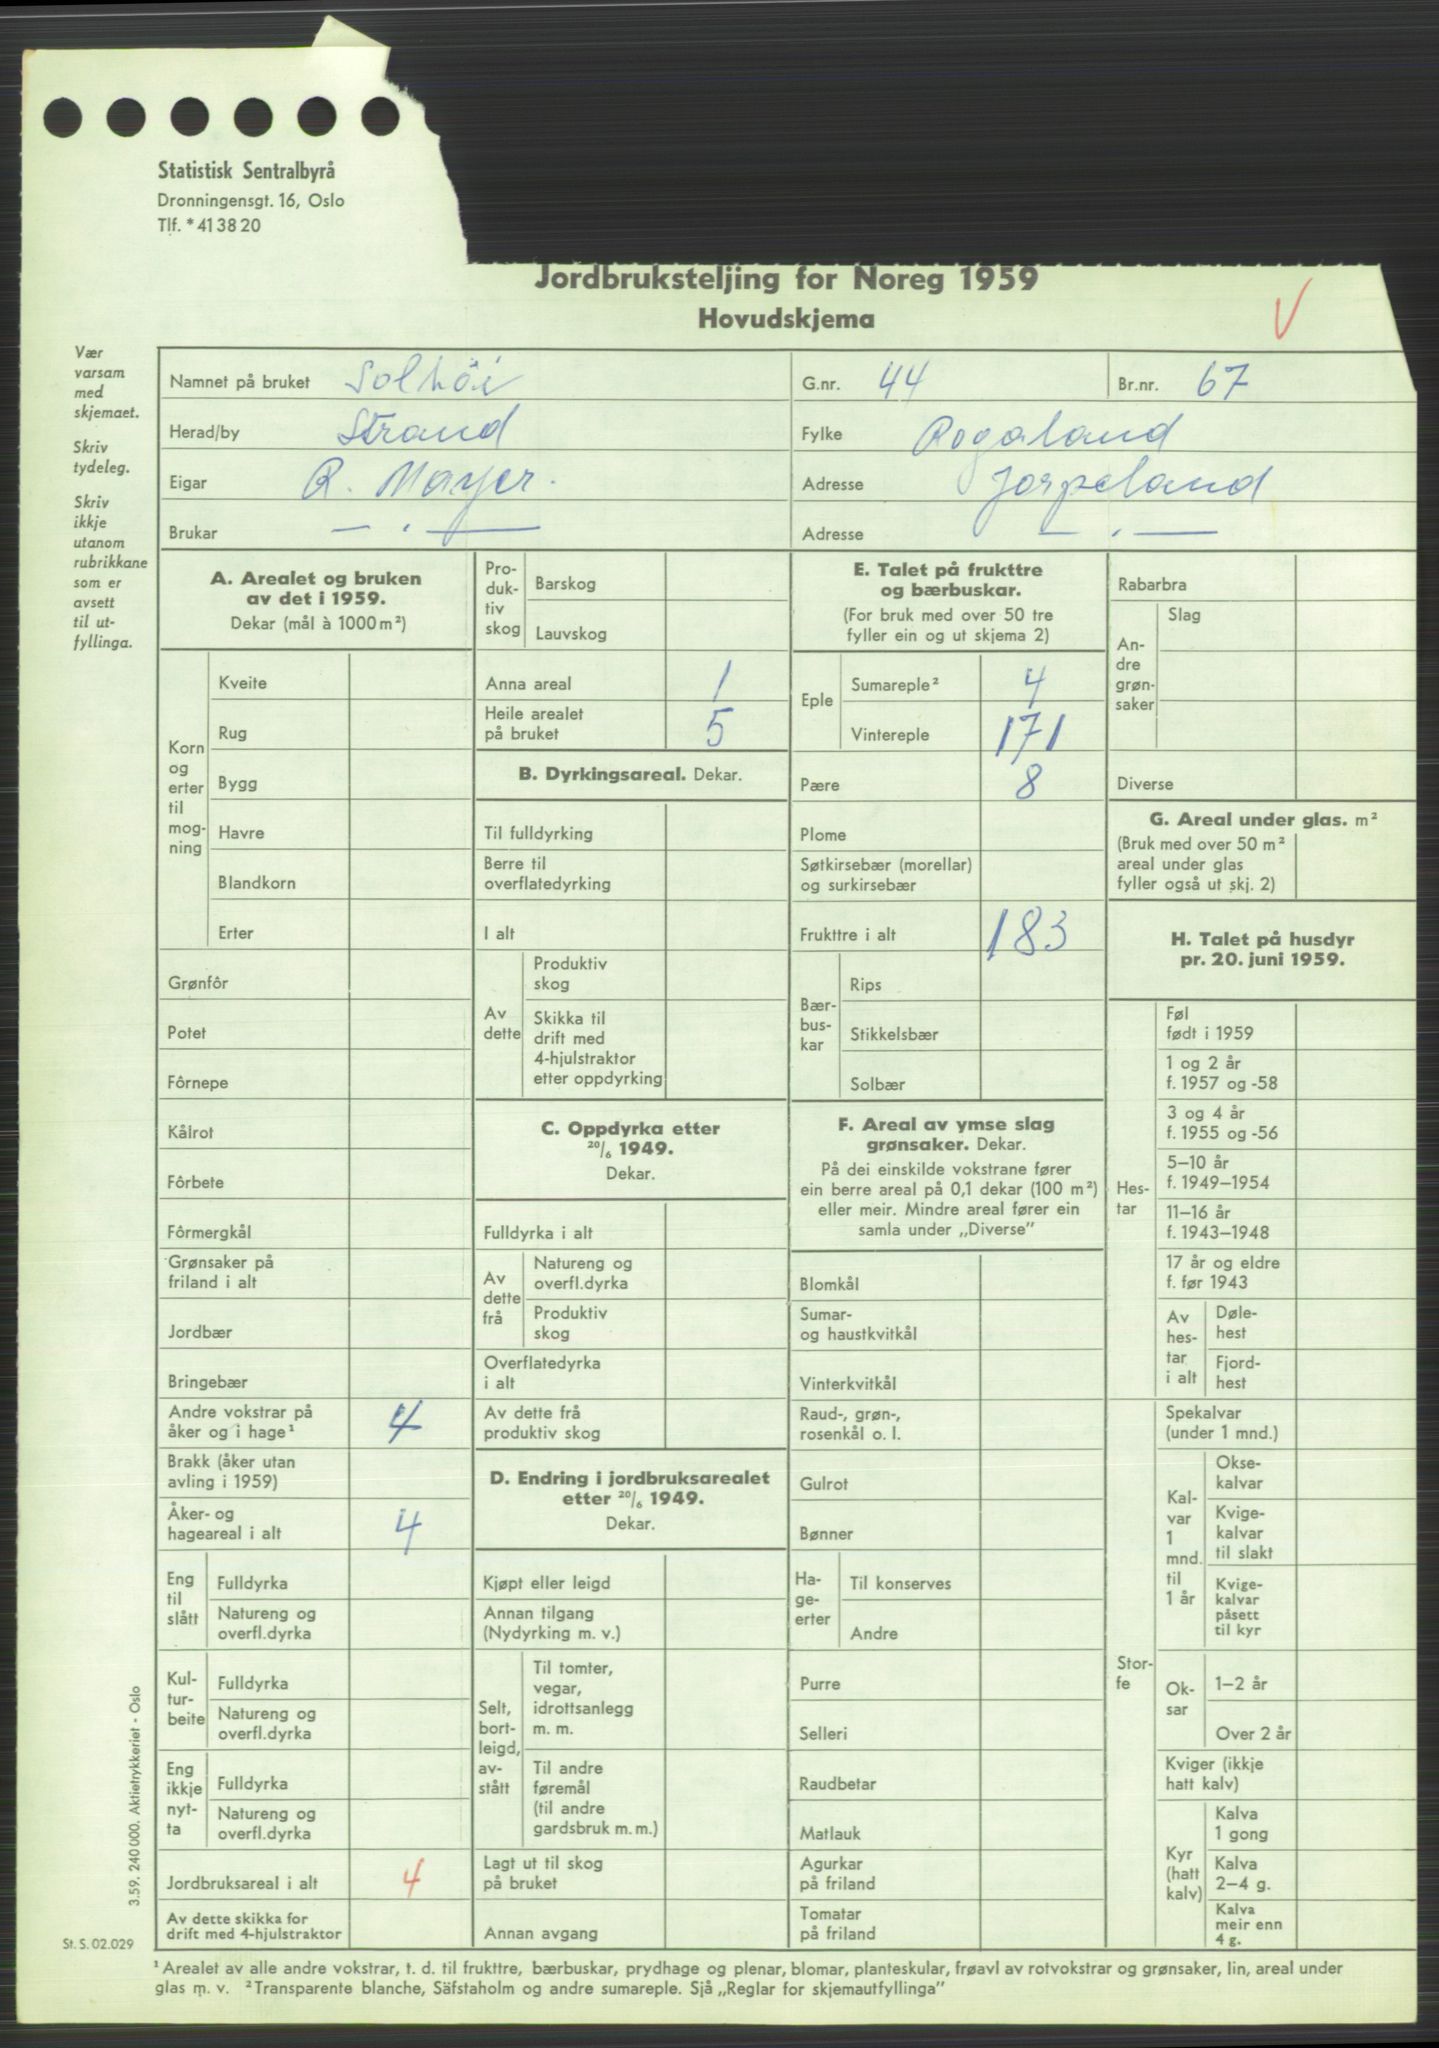 Statistisk Sentralbyrå
Dronningensgt. 16, Oslo
Tlf. * 41 38 20
Jordbruksteljing for Noreg 1959
Hovudskjema
V
Vær
varsam
med
skjemaet.
Skriv
tydeleg.
Skriv
ikkje
utanom
rubrikkane
som er
avsett
til ut-
fyllinga.
Namnet på bruket Solhöi G.nr. 44 Br.nr. 67
Herad/by Strand Fylke Rogaland
Eigar R. Mayer. Adresse Jorpeland
Brukar — . — Adresse — . —
A. Arealet og bruken
av det i 1959.
Dekar (mål à 1000 m²)
Korn
og
erter
til
mog-
ning
Kveite
Rug
Bygg
Havre
Blandkorn
Erter
Grønfôr
Potet
Fôrnepe
Kålrot
Fôrbete
Fôrmergkål
Grønsaker på
friland i alt
Jordbær
Bringebær
Andre vokstrar på
åker og i hage¹ 4
Brakk (åker utan
avling i 1959)
Åker- og
hageareal i alt 4
Eng
til
slått
Fulldyrka
Natureng og
overfl.dyrka
Kul-
tur-
beite
Fulldyrka
Natureng og
overfl.dyrka
Eng
ikkje
nyt-
ta
Fulldyrka
Natureng og
overfl.dyrka
Jordbruksareal i alt 4
Av dette skikka for
drift med 4-hjulstraktor
Pro-
duk-
tiv
skog
Barskog
Lauvskog
Anna areal 1
Heile arealet
på bruket 5
B. Dyrkingsareal. Dekar.
Til fulldyrking
Berre til
overflatedyrking
I alt
Av
dette
Produktiv
skog
Skikka til
drift med
4-hjulstraktor
etter oppdyrking
C. Oppdyrka etter
20/6 1949.
Dekar.
Fulldyrka i alt
Av
dette
frå
Natureng og
overfl.dyrka
Produktiv
skog
Overflatedyrka
i alt
Av dette frå
produktiv skog
D. Endring i jordbruksarealet
etter 20/6 1949.
Dekar.
Kjøpt eller leigd
Annan tilgang
(Nydyrking m. v.)
Selt,
bort-
leigd,
av-
stått
Til tomter,
vegar,
idrottsanlegg
m. m.
Til andre
føremål
(til andre
gardsbruk m. m.)
Lagt ut til skog
på bruket
Annan avgang
E. Talet på frukttre
og bærbuskar.
(For bruk med over 50 tre
fyller ein og ut skjema 2)
Eple
Sumareple² 4
Vintereple 171
Pære 8
Plome
Søtkirsebær (morellar)
og surkirsebær
Frukttre i alt 183
Bær-
bus-
kar
Rips
Stikkelsbær
Solbær
F. Areal av ymse slag
grønsaker. Dekar.
På dei einskilde vokstrane fører
ein berre areal på 0,1 dekar (100 m²)
eller meir. Mindre areal fører ein
samla under „Diverse”
Blomkål
Sumar-
og haustkvitkål
Vinterkvitkål
Raud-, grøn-,
rosenkål o. l.
Gulrot
Bønner
Ha-
ge-
erter
Til konserves
Andre
Purre
Selleri
Raudbetar
Matlauk
Agurkar
på friland
Tomatar
på friland
Rabarbra
An-
dre
grøn-
saker
Slag
Diverse
G. Areal under glas. m²
(Bruk med over 50 m²
areal under glas
fyller også ut skj. 2)
H. Talet på husdyr
pr. 20. juni 1959.
Hes-
tar
Føl
født i 1959
1 og 2 år
f. 1957 og -58
3 og 4 år
f. 1955 og -56
5–10 år
f. 1949–1954
11–16 år
f. 1943–1948
17 år og eldre
f. før 1943
Av
hes-
tar
i alt
Døle-
hest
Fjord-
hest
Stor-
fe
Spekalvar
(under 1 mnd.)
Kal-
var
1
mnd.
til
1 år
Okse-
kalvar
Kvige-
kalvar
til slakt
Kvige-
kalvar
påsett
til kyr
Ok-
sar
1–2 år
Over 2 år
Kviger (ikkje
hatt kalv)
Kyr
(hatt
kalv)
Kalva
1 gong
Kalva
2–4 g.
Kalva
meir enn
4 g.
3.59. 240 000. Aktietrykkeriet - Oslo
St. S. 02.029
¹ Arealet av alle andre vokstrar, t. d. til frukttre, bærbuskar, prydhage og plenar, blomar, planteskular, frøavl av rotvokstrar og grønsaker, lin, areal under
glas m. v. ² Transparente blanche, Säfstaholm og andre sumareple. Sjå „Reglar for skjemautfyllinga”